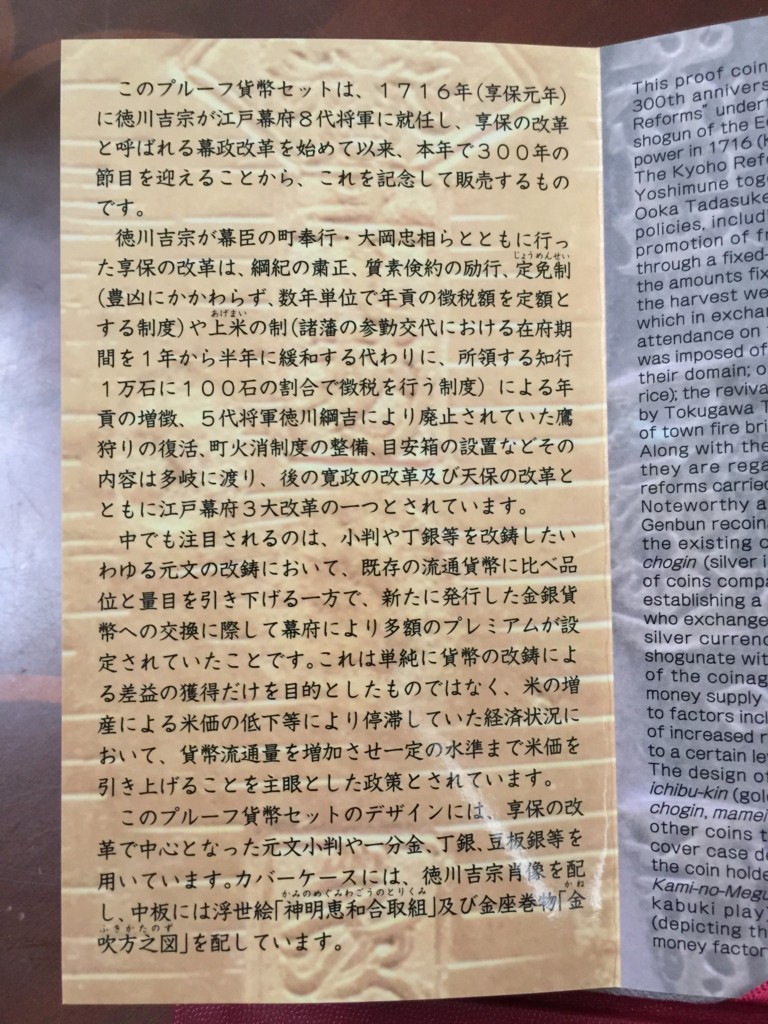 このプルーフ貨幣セットは、１７１６年(享保元年)
に徳川吉宗が江戸幕府８代将軍に就任し、享保の改革
と呼ばれる幕政改革を始めて以来、本年で３００年の
節目を迎えることから、これを記念して販売するもの
です。
徳川吉宗が幕臣の町奉行・大岡忠相らとともに行っ
じょうめんせい
た享保の改革は、綱紀の粛正、質素倹約の励行、定免制
(豊凶にかかわらず、数年単位で年貢の徴税額を定額と
あげまい
する制度)や上米の制(諸藩の参勤交代における在府期
間を１年から半年に緩和する代わりに、所領する知行
１万石に１００石の割合で徴税を行う制度)による年
貢の増徴、５代将軍徳川綱吉により廃止されていた鷹
狩りの復活、町火消制度の整備、目安箱の設置などその
内容は多岐に渡り、後の寛政の改革及び天保の改革と
ともに江戸幕府３大改革の一つとされています。
中でも注目されるのは、小判や丁銀等を改鋳したい
わゆる元文の改鋳において、既存の流通貨幣に比べ品
位と量目を引き下げる一方で、新たに発行した金銀貨
幣への交換に際して幕府により多額のプレミアムが設
定されていたことです。これは単純に貨幣の改鋳によ
る差益の獲得だけを目的としたものではなく、米の増
産による米価の低下等により停滞していた経済状況に
おいて、貨幣流通量を増加させ一定の水準まで米価を
引き上げることを主眼とした政策とされています。
このプルーフ貨幣セットのデザインには、享保の改
革で中心となった元文小判や一分金、丁銀、豆板銀等を
用いています。カバーケースには、徳川吉宗肖像を配
かみのめぐみわごうのとりくみ かね
し、中板には浮世絵「神明恵和合取組」及び金座巻物「金
ふきかたのず
吹方之図」を配しています。
This proof coin
300th annivers
Reforms" undert
shogun of the E
power in 1716 (
The Kyoho Ref
Yoshimune tog
Ooka Tadasuke
policies, includ
promotion of f
through a fixed-
the amounts fix
the harvest we
which in exchan
attendance on
was imposed of
their domain; o
rice); the reviva
by Tokugawa T
of town fire bri
Along with the
they are rega
reforms carried
Noteworthy a
Genbun recoin
the existing c
chogin (silver i
of coins compa
establishing a
who exchange
silver currenc
shogunate wit
of the coinag
money supply
to factors incl
of increased r
to a certain le
The design of
ichibu-kin (gol
chogin, mamei
other coins t
cover case d
the coin holde
Kami-no-Megu
kabuki play)
(depicting th
money factor